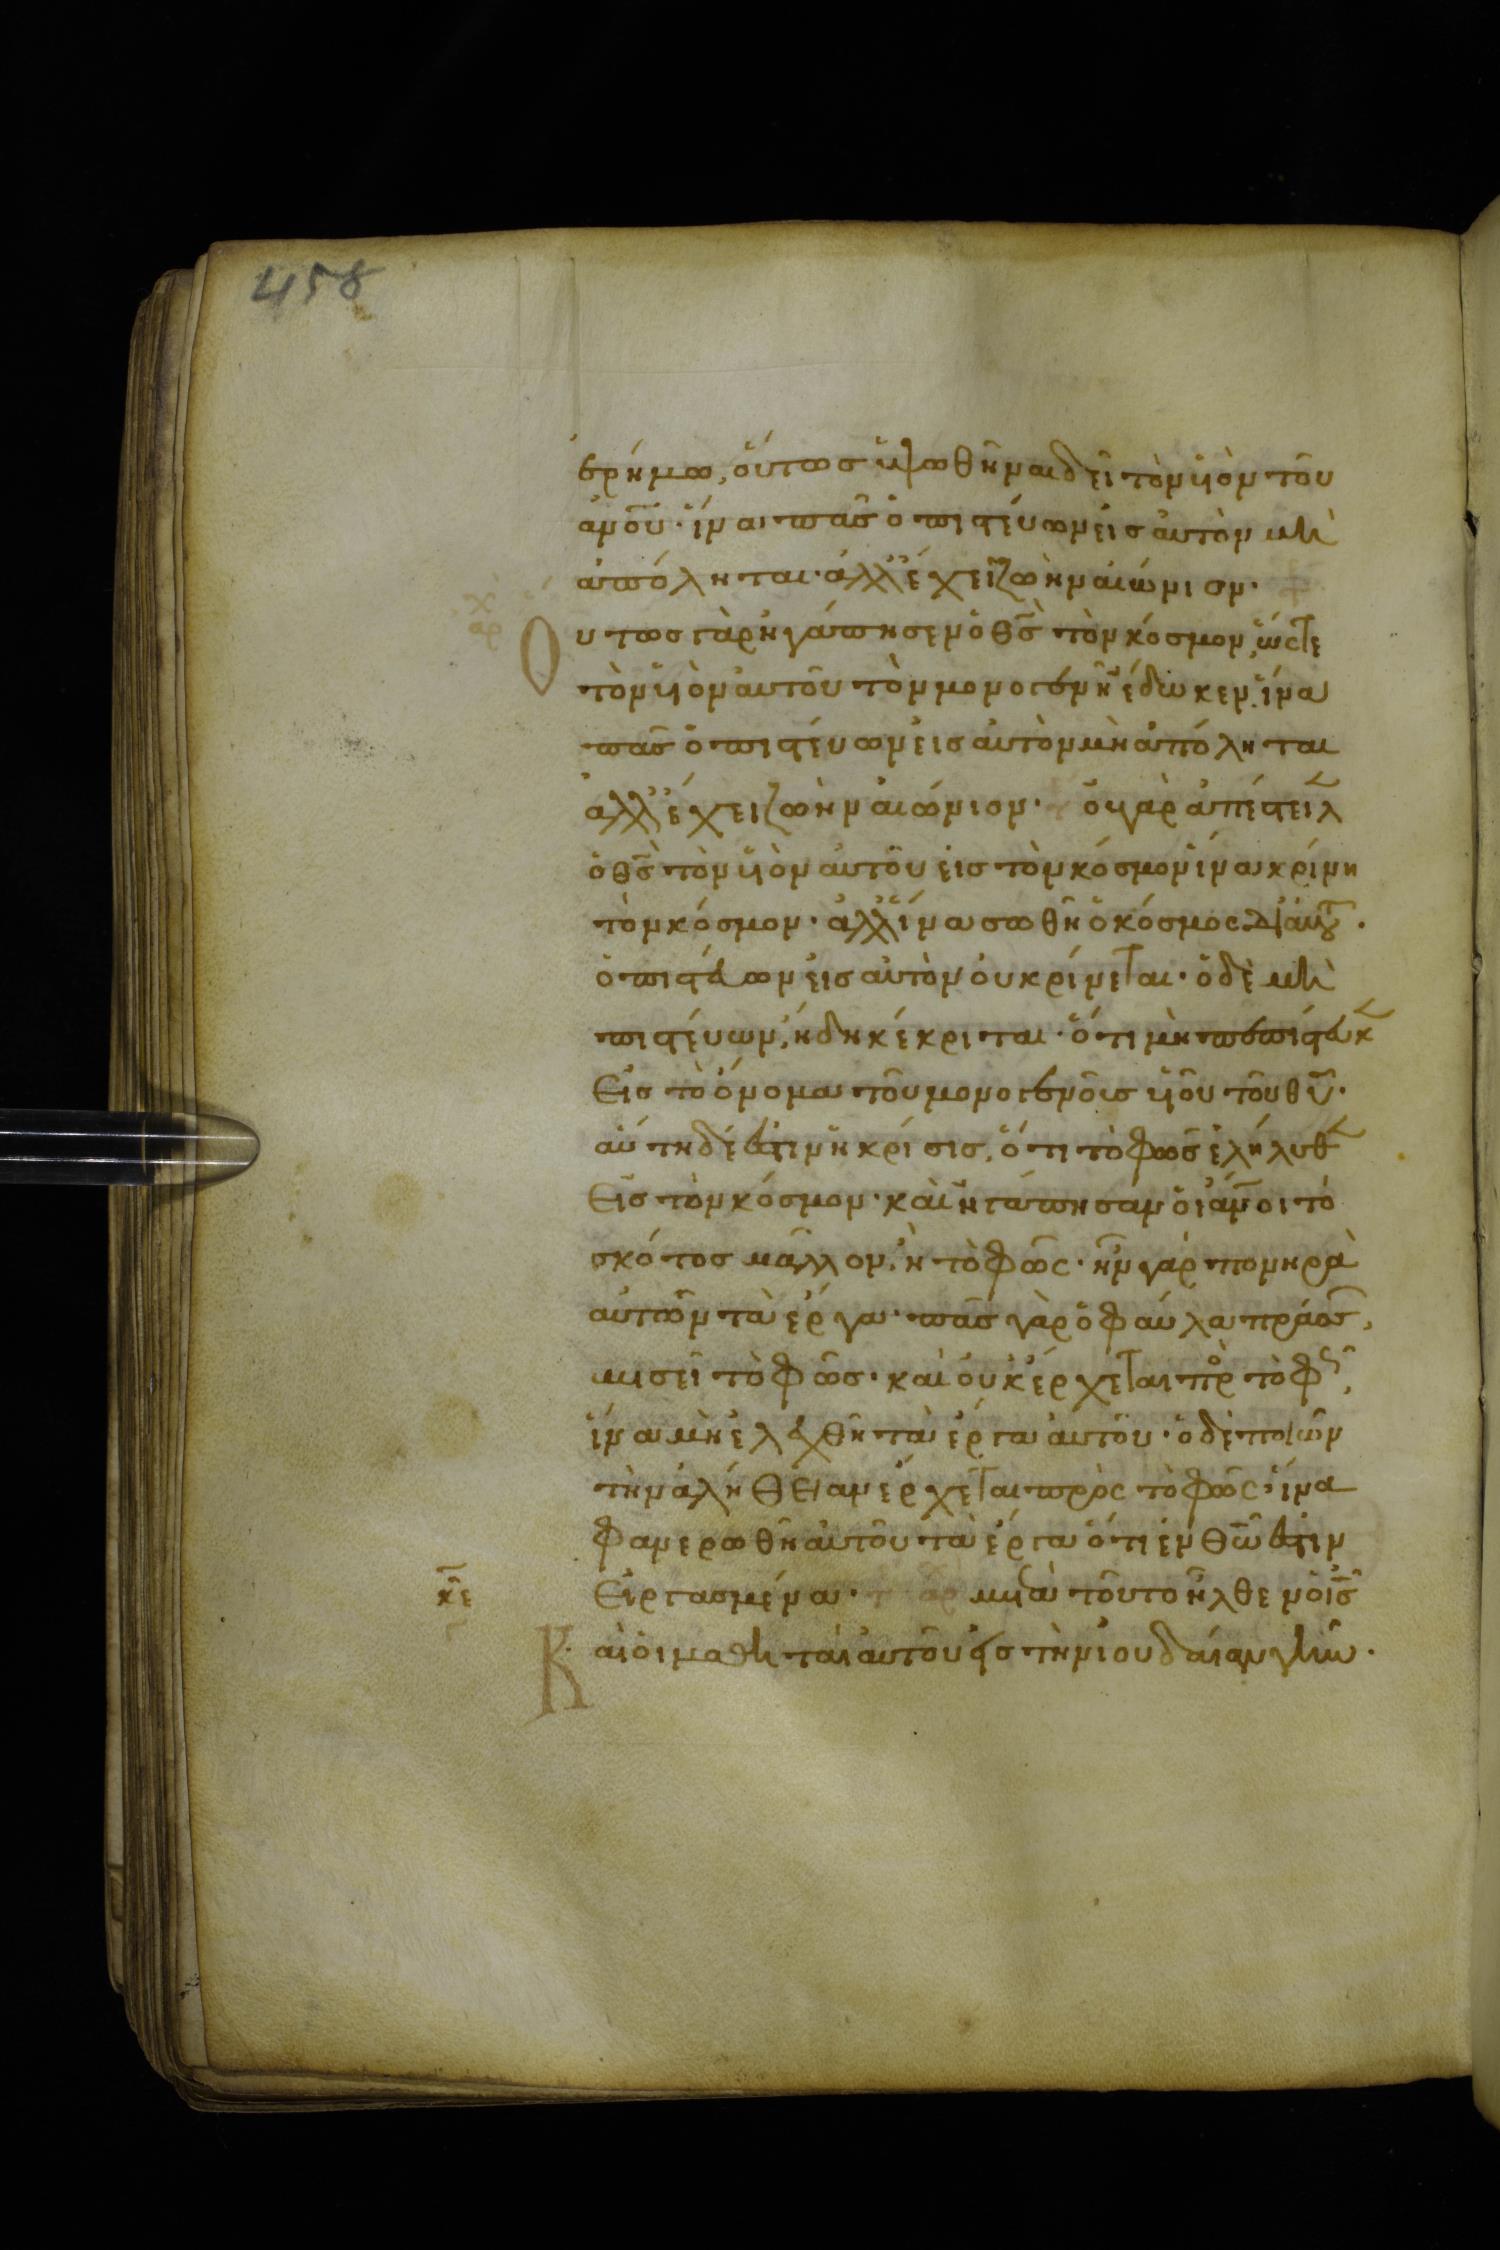 458
ἐρήμω, οὕτωσ ὑψωθῆναι δεῖ τὸν ὑὸν τοῦ
ἀνου· ἵνα πᾶσ ὁ πιστεύων εἰσ αὐτὸν μὴ
ἀπόληται· ἀλλ' ἔχει ζωὴν αἰώνιον·
Ουτωσ γὰρ ἠγάπησεν ὁ θσ τὸν κόσμον, ὥστε
τὸν ὑὸν αὐτοῦ τὸν μονογενῆ ἔδωκεν. ἵνα
πᾶσ ὁ πιστεύων εἰσ αὐτὸν μὴ ἀπόληται
ἀλλ' ἔχει ζωὴν αἰώνιον· οὐ γαρ ἀπέστειλ
ὁ θσ τὸν ὑὸν αὐτοῦ εἰσ τὸν κόσμον ἵνα κρίνη
τὸν κόσμον· ἀλλ' ἵνα σωθῆ ὁ κόσμοσ δι' αὐτου.
ὁ πιστεύων εἰσ αὐτὸν οὐ κρίνεται· ὁ δὲ μὴ
πιστεύων, ἤδη κέκριται· ὅτι μὴ πεπίστευκ
εἰσ τὸ ὄνομα τοῦ μονογενοῦσ ὑοῦ τοῦ θυ·
αὕτη δέ ἐστιν ἡ κρίσισ, ὅτι τὸ φῶσ ἐλήλυθ
εἰσ τὸν κόσμον· καὶ ἠγάπησαν οἱ ἀνοι τὸ
σκότοσ μᾶλλον, ἢ τὸ φῶσ· ἦν γάρ πονηρὰ
αὐτῶν τὰ ἔργα· πᾶσ γὰρ ὁ φαῦλα πράσσ,
μισεῖ τὸ φῶσ· καὶ οὐκ ἔρχεται πρ τὸ φ,
ἵνα μὴ ἐλεχθῆ τὰ ἔργα αὐτοῦ· ὁ δὲ ποιῶν
τὴν ἀλήθειαν ἔρχεται πρὸσ τὸ φῶσ, ἵνα
φανερωθῆ αὐτοῦ τὰ ἔργα ὅτι ἐν θω ἐστιν
εἰργασμένα· μετὰ τοῦτο ἦλθεν ὁ ισ
κε
Καὶ οἱ μαθηταὶ αὐτοῦ εἰσ τὴν ἰουδαίαν γῆν·